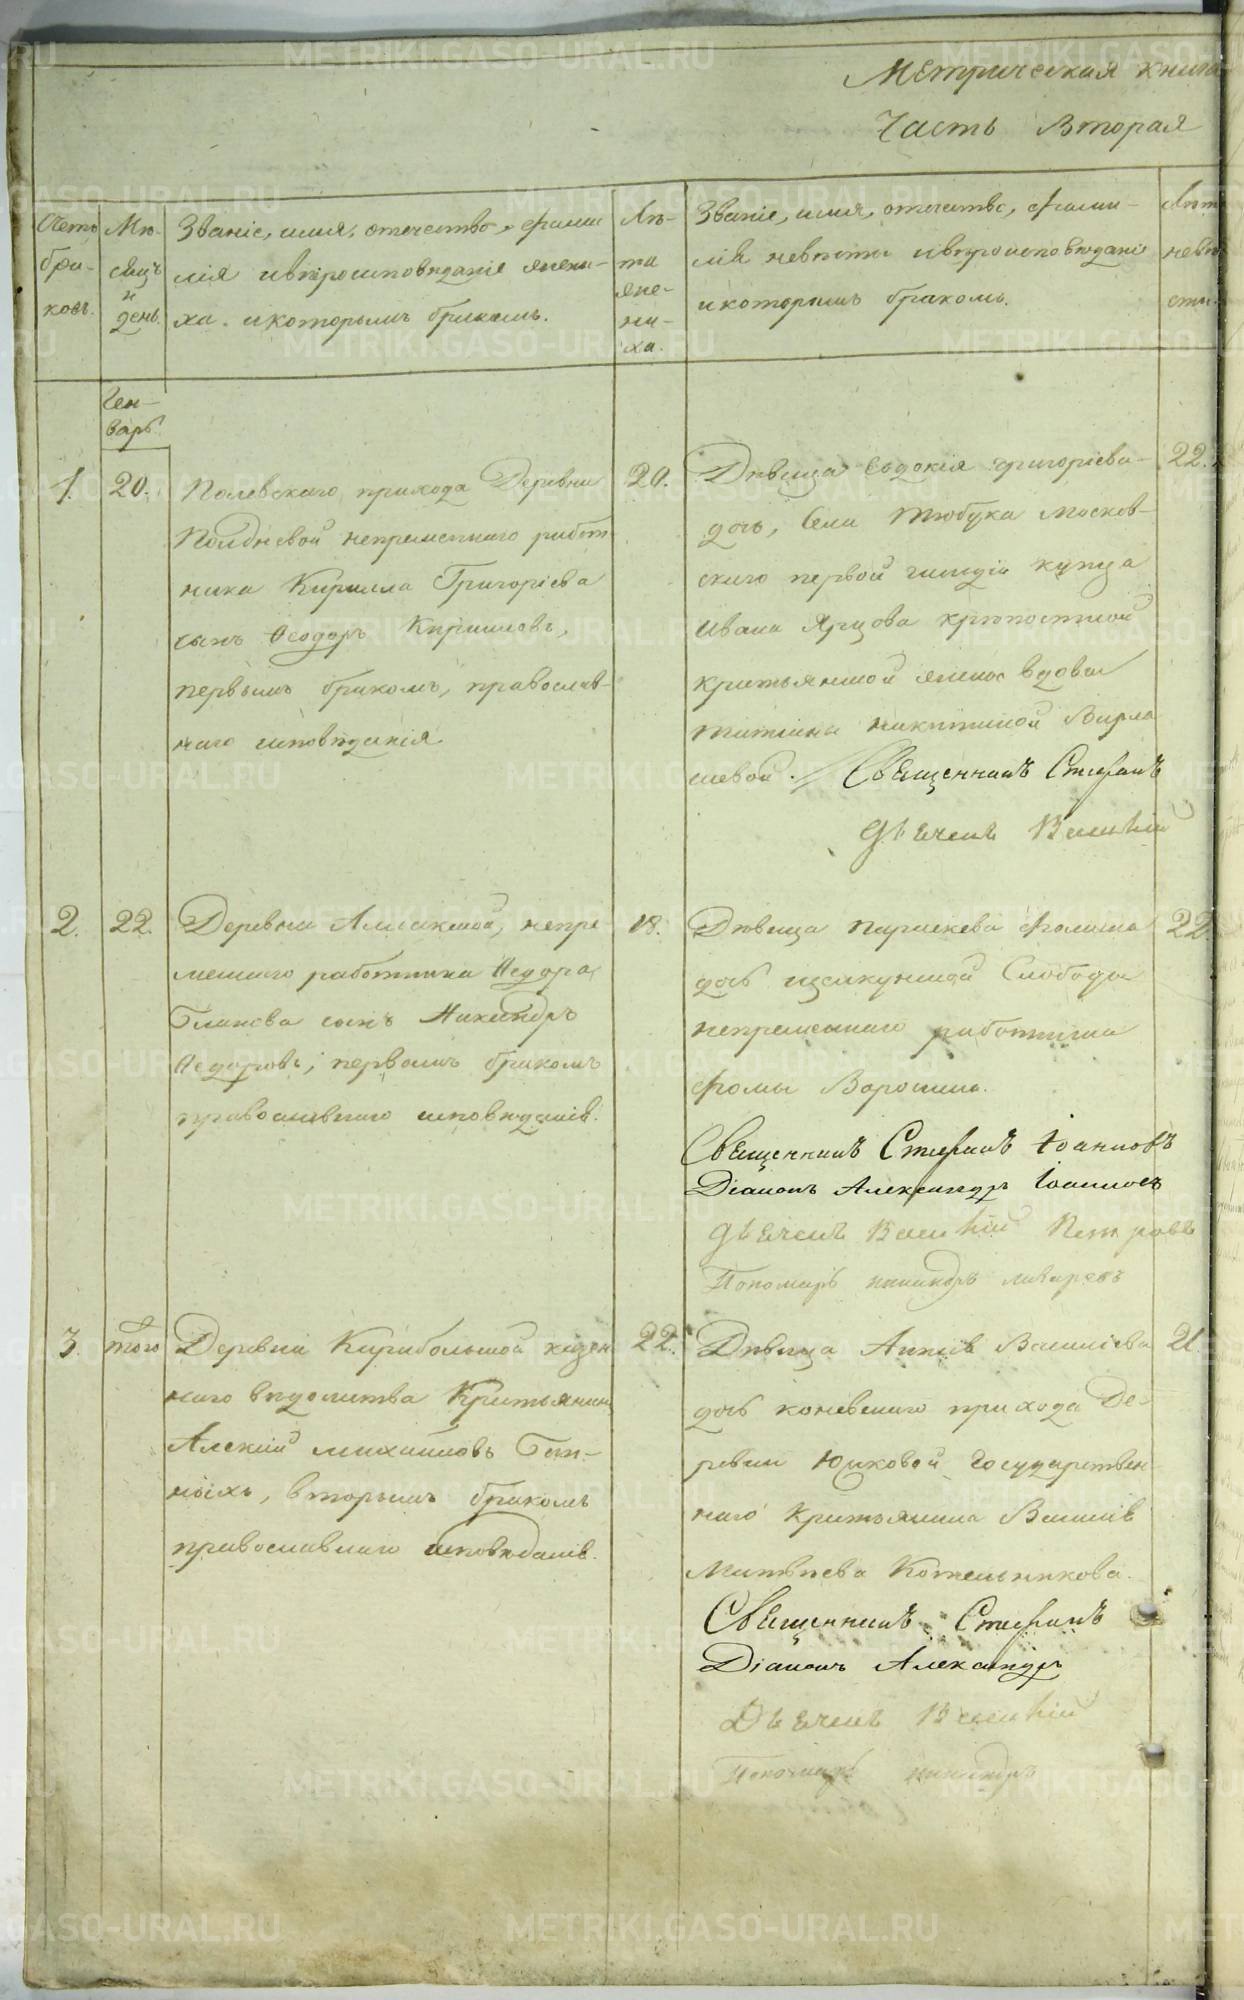 Метрическая книга
Часть Вторая
Счетъ браковъ.
Мѣсяцъ и день.
Званіе, имя, отечество, фамилія и вѣроисповѣданіе жениха. и которымъ бракомъ.
Лѣта жениха.
Званіе, имя, отечество, фамилія невѣсты и вѣроисповѣданіе
и которымъ бракомъ.
Лѣта невѣсты.
Генварь
1. 20.
Полевскаго прихода Деревни
Полдневой непременнаго работника
Кирилла Григорiева
сынъ Ѳеодоръ Кириловъ,
первымъ бракомъ, православнаго
исповѣданія
20.
Дѣвица Евдокія Григорiева
дочь, Села Тюбука Московскаго
первой гильдіи купца
Ивана Ярцова крѣпостной
крестьянской жены вдовы
Татіаны Никитиной
Священникъ Стефанъ
Дьячекъ Василій
22.
2. 22.
Деревни непременнаго
работника Ѳедора
сынъ Никандръ
Ѳедоровъ, первымъ бракомъ
православнаго исповѣданія.
18.
Дѣвица Параскева Фомина
дочь Щелкунской Слободы
непременнаго работника
Фомы Воронина.
Священникъ Стефанъ Іоанновъ
Діаконъ Александръ Іоанновъ
Дьячекъ Василій Петровъ
Пономарь Никандръ
22.
3. того
Деревни Карабольшой казеннаго
вѣдомства Крестьянинъ
Алексій Михайловъ
вторымъ бракомъ
православнаго исповѣданія.
22.
Дѣвица Анна Василіева
дочь Коневскаго прихода Деревни
Юшковой Государственнаго
Крестьянина Василія
Матвѣева Котельникова.
Священникъ Стефанъ
Діаконъ Александръ
Дьячекъ Василій
Пономарь Никандръ
21.
METRIKI.GASO-URAL.RU